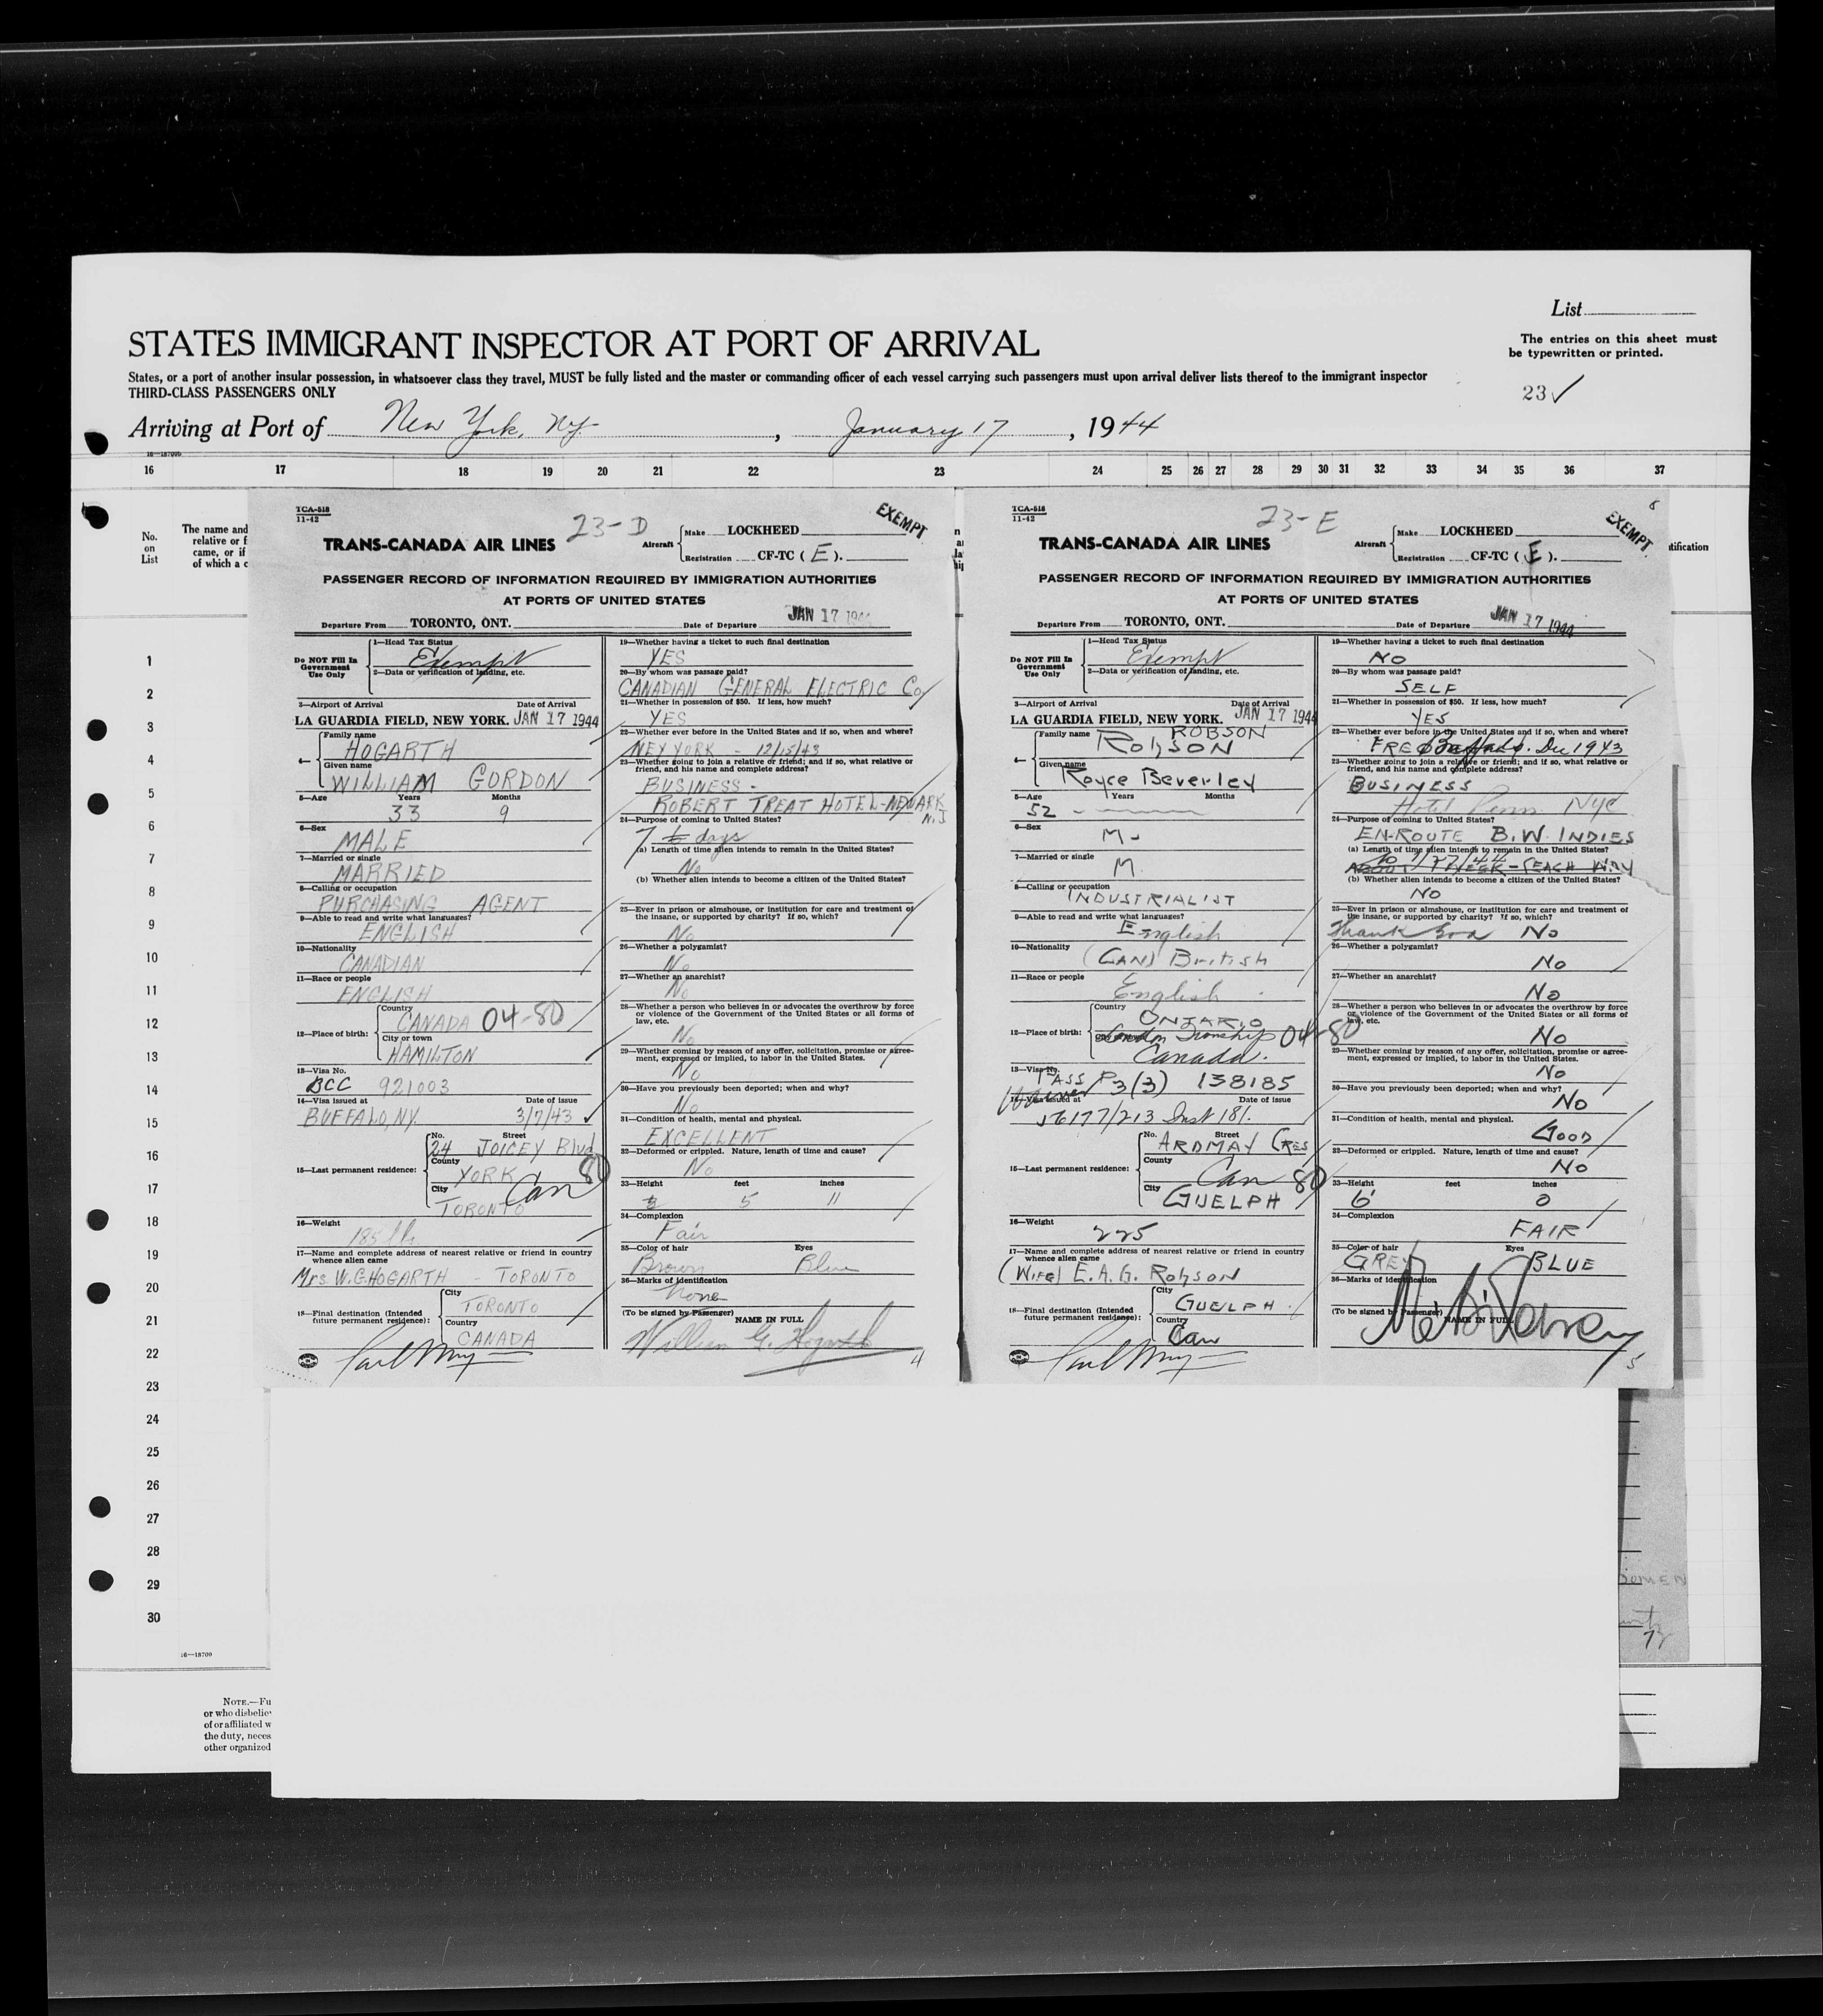 List
STATES IMMIGRANT INSPECTOR AT PORT OF ARRIVAL
The entries on this sheet must
be typewritten or printed.
States, or a port of another insular possession, in whatsoever class they travel, MUST be fully listed and the master or commanding officer of each vessel carrying such passengers must upon arrival deliver lists thereof to the immigrant inspector
THIRD-CLASS PASSENGERS ONLY
23 ✓
Arriving at Port of New York, NY. , January 17 , 1944
16 17 18 19 20 21 22 23 24 25 26 27 28 29 30 31 32 33 34 35 36 37
No.
on
List
The name and
relative or f
came, or if
of which a c
tification
1
2
3
4
5
6
7
8
9
10
11
12
13
14
15
16
17
18
19
20
21
22
23
24
25
26
27
28
29
30
16—18700
NOTE.—Fu
or who disbelie
of or affiliated w
the duty, neces
other organized
TCA-518
11-42
23-D
EXEMPT
TRANS-CANADA AIR LINES
Aircraft
Make LOCKHEED
Registration CF-TC ( E ).
PASSENGER RECORD OF INFORMATION REQUIRED BY IMMIGRATION AUTHORITIES
AT PORTS OF UNITED STATES
Departure From TORONTO, ONT. Date of Departure JAN 17 1944
Do NOT Fill In
Government
Use Only
1—Head Tax Status
Exempt
2—Data or verification of landing, etc.
3—Airport of Arrival Date of Arrival
LA GUARDIA FIELD, NEW YORK. JAN 17 1944
4—
Family name
HOGARTH
Given name
WILLIAM GORDON
5—Age Years Months
33 9
6—Sex
MALE
7—Married or single
MARRIED
8—Calling or occupation
PURCHASING AGENT
9—Able to read and write what languages?
ENGLISH
10—Nationality
CANADIAN
11—Race or people
ENGLISH
12—Place of birth:
Country
CANADA 04-80
City or town
HAMILTON
13—Visa No.
BCC 921003
14—Visa issued at Date of issue
BUFFALO, NY. 3/7/43
15—Last permanent residence:
No. Street
24 JOICEY Blvd
County
YORK 80
City Can
TORONTO
16—Weight
185 lb.
17—Name and complete address of nearest relative or friend in country
whence alien came
Mrs W.G. HOGARTH - TORONTO
18—Final destination (Intended
future permanent residence):
City
TORONTO
Country
CANADA
19—Whether having a ticket to such final destination
YES
20—By whom was passage paid?
CANADIAN GENERAL ELECTRIC Co
21—Whether in possession of $50. If less, how much?
YES
22—Whether ever before in the United States and if so, when and where?
NEY YORK - 12/15/43
23—Whether going to join a relative or friend; and if so, what relative or
friend, and his name and complete address?
BUSINESS -
ROBERT TREAT HOTEL-NEWARK
N.J
24—Purpose of coming to United States?
7 days
(a) Length of time alien intends to remain in the United States?
No
(b) Whether alien intends to become a citizen of the United States?
25—Ever in prison or almshouse, or institution for care and treatment of
the insane, or supported by charity? If so, which?
No
26—Whether a polygamist?
No
27—Whether an anarchist?
No
28—Whether a person who believes in or advocates the overthrow by force
or violence of the Government of the United States or all forms of
law, etc.
No
29—Whether coming by reason of any offer, solicitation, promise or agree-
ment, expressed or implied, to labor in the United States.
No
30—Have you previously been deported; when and why?
No
31—Condition of health, mental and physical.
EXCELLENT
32—Deformed or crippled. Nature, length of time and cause?
No
33—Height feet inches
5 11
34—Complexion
Fair
35—Color of hair Eyes
Brown Blue
36—Marks of identification
None
(To be signed by Passenger)
NAME IN FULL
William G. Hogarth
4
TCA-518
11-42
23-E
8
EXEMPT
TRANS-CANADA AIR LINES
Aircraft
Make LOCKHEED
Registration CF-TC ( E ).
PASSENGER RECORD OF INFORMATION REQUIRED BY IMMIGRATION AUTHORITIES
AT PORTS OF UNITED STATES
Departure From TORONTO, ONT. Date of Departure JAN 17 1944
Do NOT Fill In
Government
Use Only
1—Head Tax Status
Exempt
2—Data or verification of landing, etc.
3—Airport of Arrival Date of Arrival
LA GUARDIA FIELD, NEW YORK. JAN 17 1944
4—
Family name ROBSON
Robson
Given name
Royce Beverley
5—Age Years Months
52
6—Sex
M-
7—Married or single
M
8—Calling or occupation
INDUSTRIALIST
9—Able to read and write what languages?
English
10—Nationality
(CAN) British
11—Race or people
English
12—Place of birth:
Country
ONTARIO
London Township 04-80
Canada.
13—Visa No.
PASS P3(3) 138185
Waiver
14—Visa issued at Date of issue
56177/213 Inst 181.
15—Last permanent residence:
No. Street
ARDMAY CRES
County
Can 80
City
GUELPH
16—Weight
225
17—Name and complete address of nearest relative or friend in country
whence alien came
(Wife) E.A.G. Robson
18—Final destination (Intended
future permanent residence):
City
GUELPH
Country
Can
19—Whether having a ticket to such final destination
NO
20—By whom was passage paid?
SELF
21—Whether in possession of $50. If less, how much?
YES
22—Whether ever before in the United States and if so, when and where?
Buffalo. Dec 1943
23—Whether going to join a relative or friend; and if so, what relative or
friend, and his name and complete address?
BUSINESS
Hotel Penn NYC
24—Purpose of coming to United States?
EN-ROUTE B.W. INDIES
(a) Length of time alien intends to remain in the United States?
to 1/27/44
(b) Whether alien intends to become a citizen of the United States?
NO
25—Ever in prison or almshouse, or institution for care and treatment of
the insane, or supported by charity? If so, which?
Thank God No
26—Whether a polygamist?
No
27—Whether an anarchist?
No
28—Whether a person who believes in or advocates the overthrow by force
or violence of the Government of the United States or all forms of
law, etc.
No
29—Whether coming by reason of any offer, solicitation, promise or agree-
ment, expressed or implied, to labor in the United States.
No
30—Have you previously been deported; when and why?
No
31—Condition of health, mental and physical.
GOOD
32—Deformed or crippled. Nature, length of time and cause?
No
33—Height feet inches
6' 0
34—Complexion
FAIR
35—Color of hair Eyes
GREY BLUE
36—Marks of identification
(To be signed by Passenger)
NAME IN FULL
5